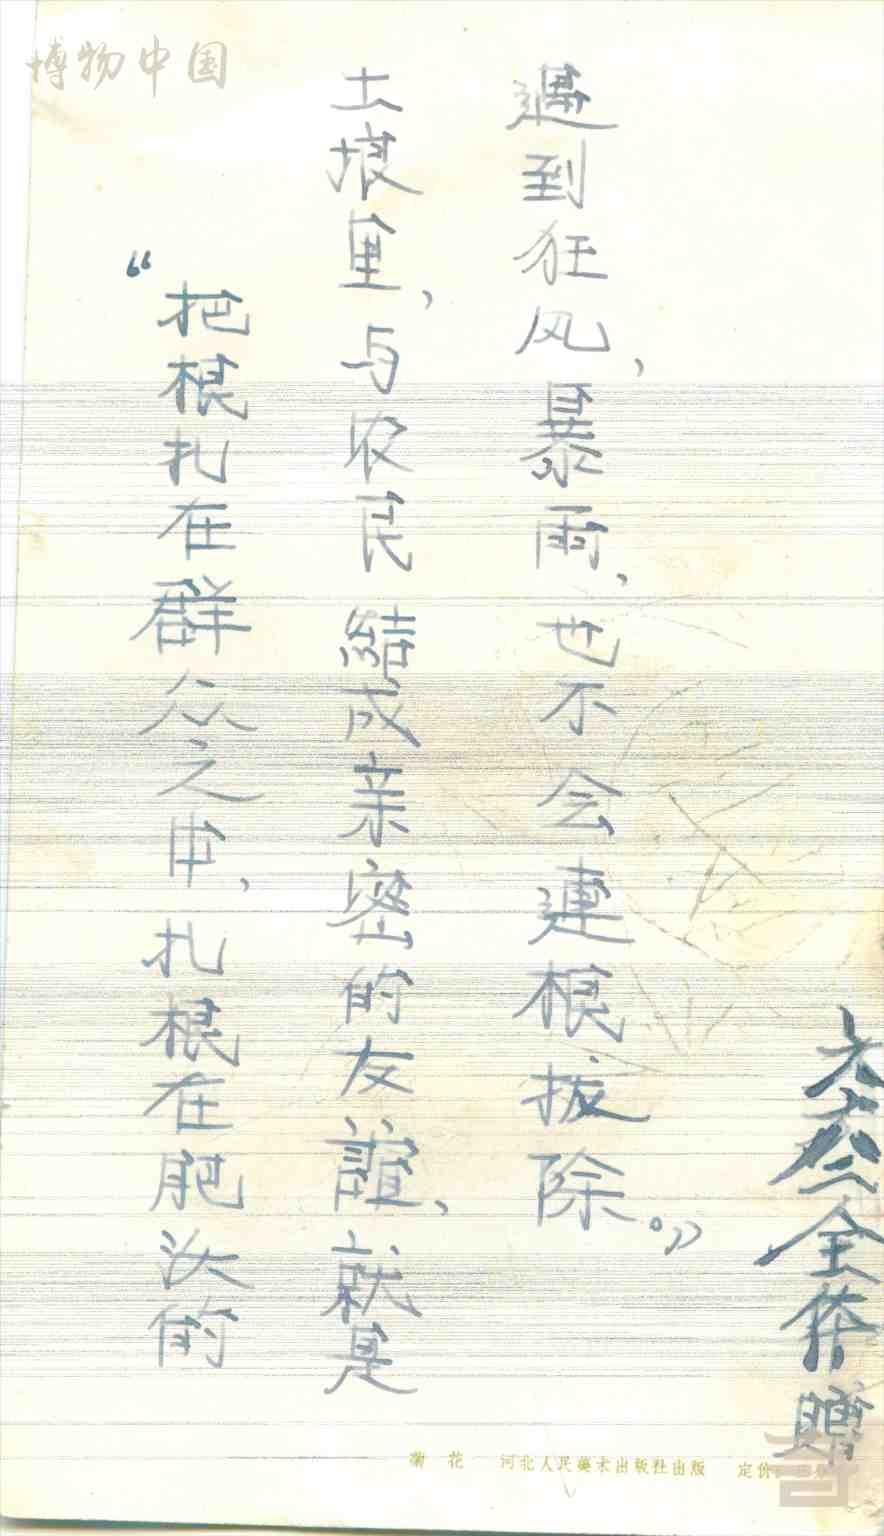 博物中国
“把根扎在群众之中,扎根在肥沃的
土埌里,与农民結成亲密的友誼,就是
遇到狂风,暴雨,也不会連根拔除。”
贈
菊花 河北人民美术出版社出版 定价